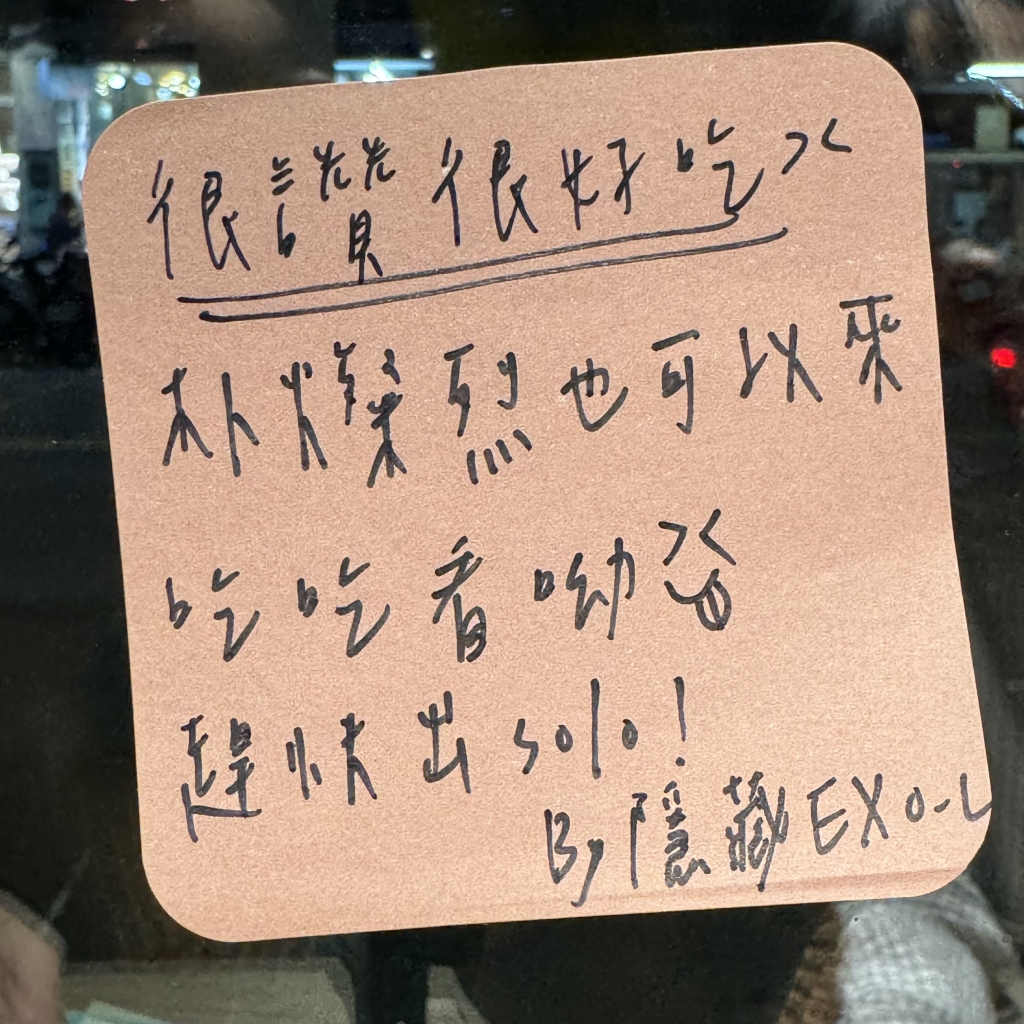 很讚很好吃
朴燦烈也可以來
吃吃看呦
趕快出solo!
By 隱藏EXO-L